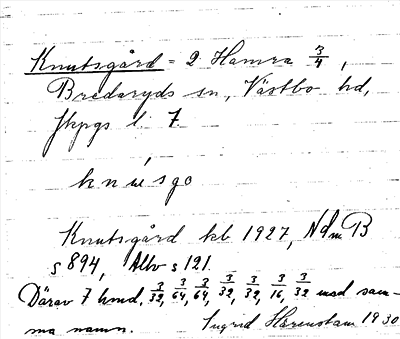 Knutsgård = 2 Hamra 3/4,
Bredaryds sn, Västbo hd,
Jkpgs l. 7
Knutsgård kb 1927, NdmB
s 894, s 121.
Därav 7 hmd. 3/32, 3/64, 3/64, 3/32, 3/32, 3/16, 3/32 med sam-
ma namn. Ingrid Härenstam 1930